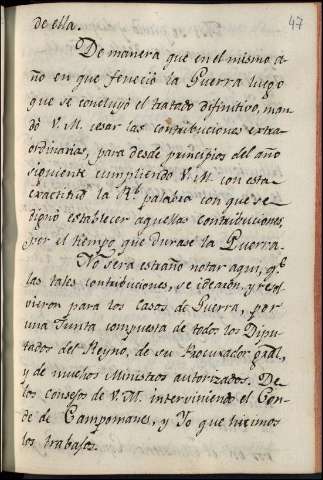 47
de ella.
De manera que en el mismo a-
ño en que feneció la Guerra luego
que se concluyó el tratado difinitivo, man-
dó V. M. cesar las contribuciones extra-
ordinarias, para desde principios del año
siguiente cumpliendo V. M. con esta
exactitud la Rl. palabra con que se
dignó establecer aquellas contribuciones
por el tiempo que durase la Guerra.
No será estraño notar aqui, q.e
las tales contribuciones, se idearon, y resol-
vieron para los casos de Guerra, por
una Junta compuesta de todos los Dipu-
tados del Reyno, de su Procurador gral,
y de muchos Ministros autorizados. De
los Consejos de V. M. interviniendo el Con-
de de Campomanes, y Yo que hicimos
los trabajos.